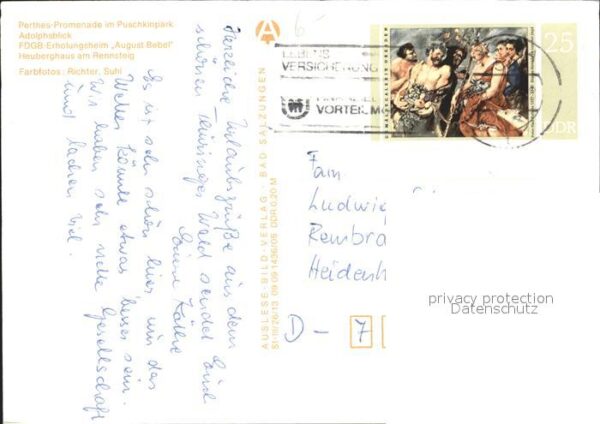 Perthes-Promenade im Puschkinpark
Adolphsblick
FDGB-Erholungsheim „August Bebel"
Heuberghaus am Rennsteig
Farbfotos: Richter, Suhl
6
A
LEBENS
VERSICHERUNG
VORTEIL
25
DDR
AUSLESE-BILD-VERLAG · BAD SALZUNGEN
09 09 1436/05 DDR 0,20 M
Herzliche Urlaubsgrüße aus dem
schönen Thüringer Wald sendet Euch
Eure Käthe
Es ist sehr schön hier nur das
Wetter könnte etwas besser sein.
Wir haben sehr nette Gesellschaft
und lachen viel.
Fam
Ludwig
Rembra
Heidenh
D - 7
privacy protection
Datenschutz